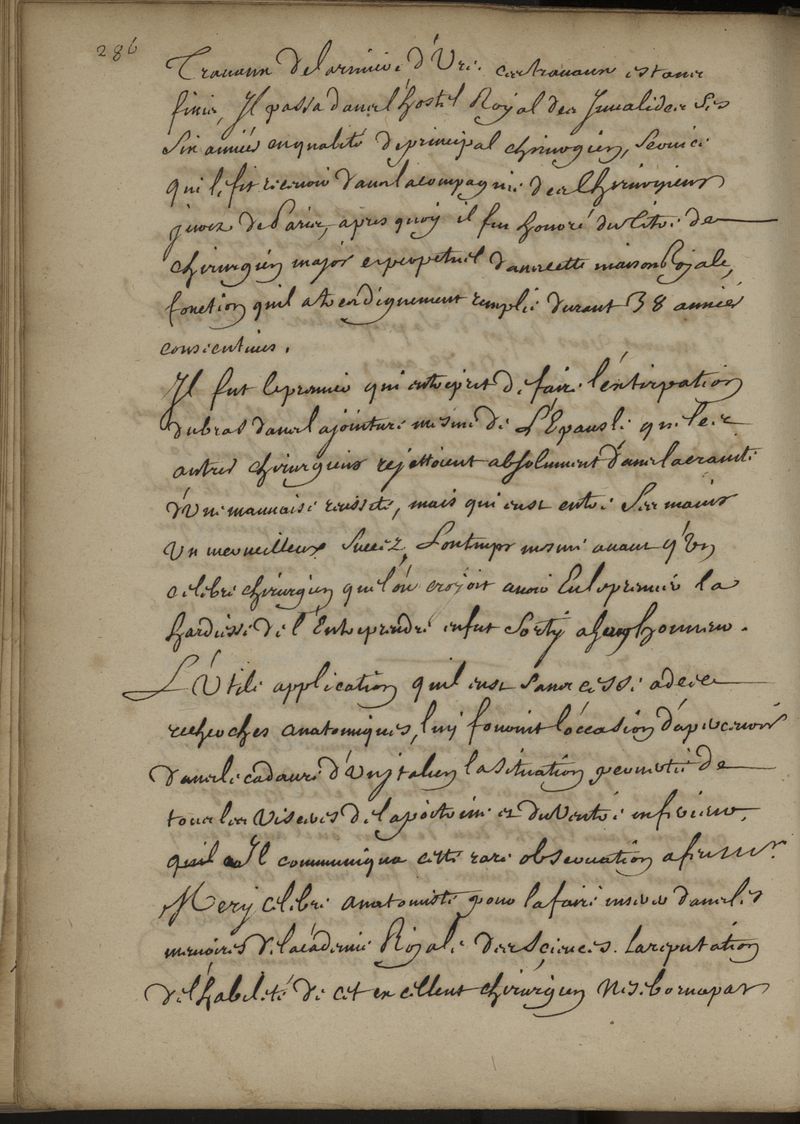 286
Travaux de la riviere d'Ure. ces travaux estant
finis, Il passa dans l'hostel Royal des Invalides ses
six années en qualité de principal chirurgien, service
qui le fit recevoir dans la compagnie des Chirurgiens
jurez de Paris, apres quoy il fut honoré du titre de
chirurgien major et perpetuel dans cette maison Royale,
fonction qu'il a tres dignement remplie durant 38 années
consecutives.
Il fut le premier qui entreprit de faire l'extirpation
du bras dans la jointure mesme de L'Epausle que les
autres chirurgiens rejettoient absolument dans la crainte
d'Une mauvaise reussite, mais qui eust entre ses mains
Un merveilleux succez, Longtemps mesme avant qu'Un
celebre chirurgien que l'on croyoit avoir Eu le premier la
hardiesse de l'Entreprendre en fut sorty a son honneur.
L'Utile application qu'il eust sans cesse a des
recherches anatomiques, luy fournit l'occasion d'apercevoir
dans le cadavre d'Un italien la situation de
tous les Visceres de la poitrine et du Ventre inferieur,
Il communiqua cette rare observation a feu Mr.
Mery celebre anatomiste pour la faire inserer dans les
memoires de l'academie Royale des Sciences. La reputation
de l'habileté de cet excellent chirurgien ne se borna pas